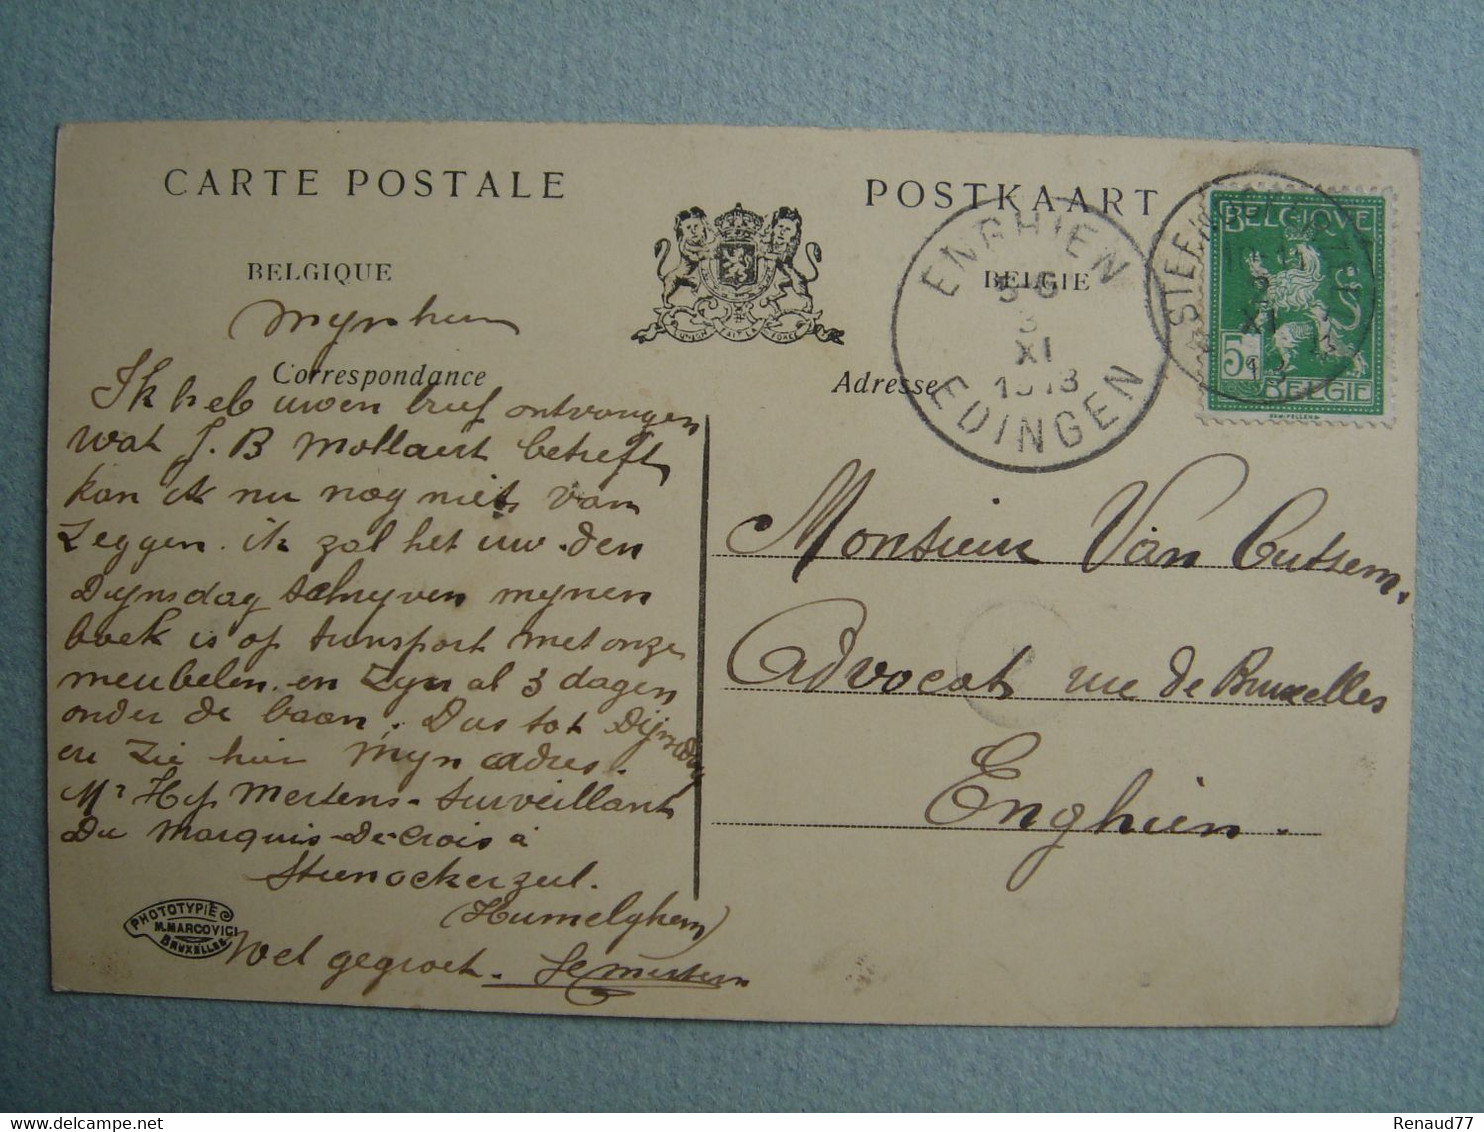 CARTE POSTALE
POSTKAART
BELGIQUE
BELGIE
L'UNION FAIT LA FORCE
Correspondance
Adresse
ENGHIEN
XI
1913
EDINGEN
BELGIQUE
5
BELGIE
XI
Mynheer
Ik heb uwen brief ontvangen
wat J. B Mollaert betreft
kan ik nu nog niets van
Zeggen. ik zal het uw den
Dynsdag schryven mynen
boek is op transport met onze
meubelen. en Zyn al 3 dagen
onder de baan. Dus tot Dijnsdag
en Zie hier Myn adres.
Mr Hyp Mertens - Surveillant
Du Marquis-De-Crois à
Steenockerzeel.
(Humelghem)
Wel gegroet. Mertens
Monsieur Van Cutsem,
Advocat rue de Bruxelles
Enghien.
PHOTOTYPIE
M. MARCOVICI
BRUXELLES
Renaud77